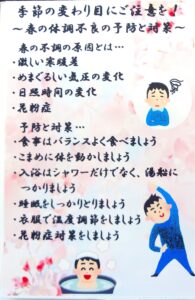 季節の変わり目にご注意を!
〜春の体調不良の予防と対策〜
春の不調の原因とは…
・激しい寒暖差
・めまぐるしい気圧の変化
・日照時間の変化
・花粉症
予防と対策…
・食事はバランスよく食べましょう
・こまめに体を動かしましょう
・入浴はシャワーだけでなく、湯船に
つかりましょう
・睡眠をしっかりとりましょう
・衣服で温度調節をしましょう
・花粉症対策をしましょう